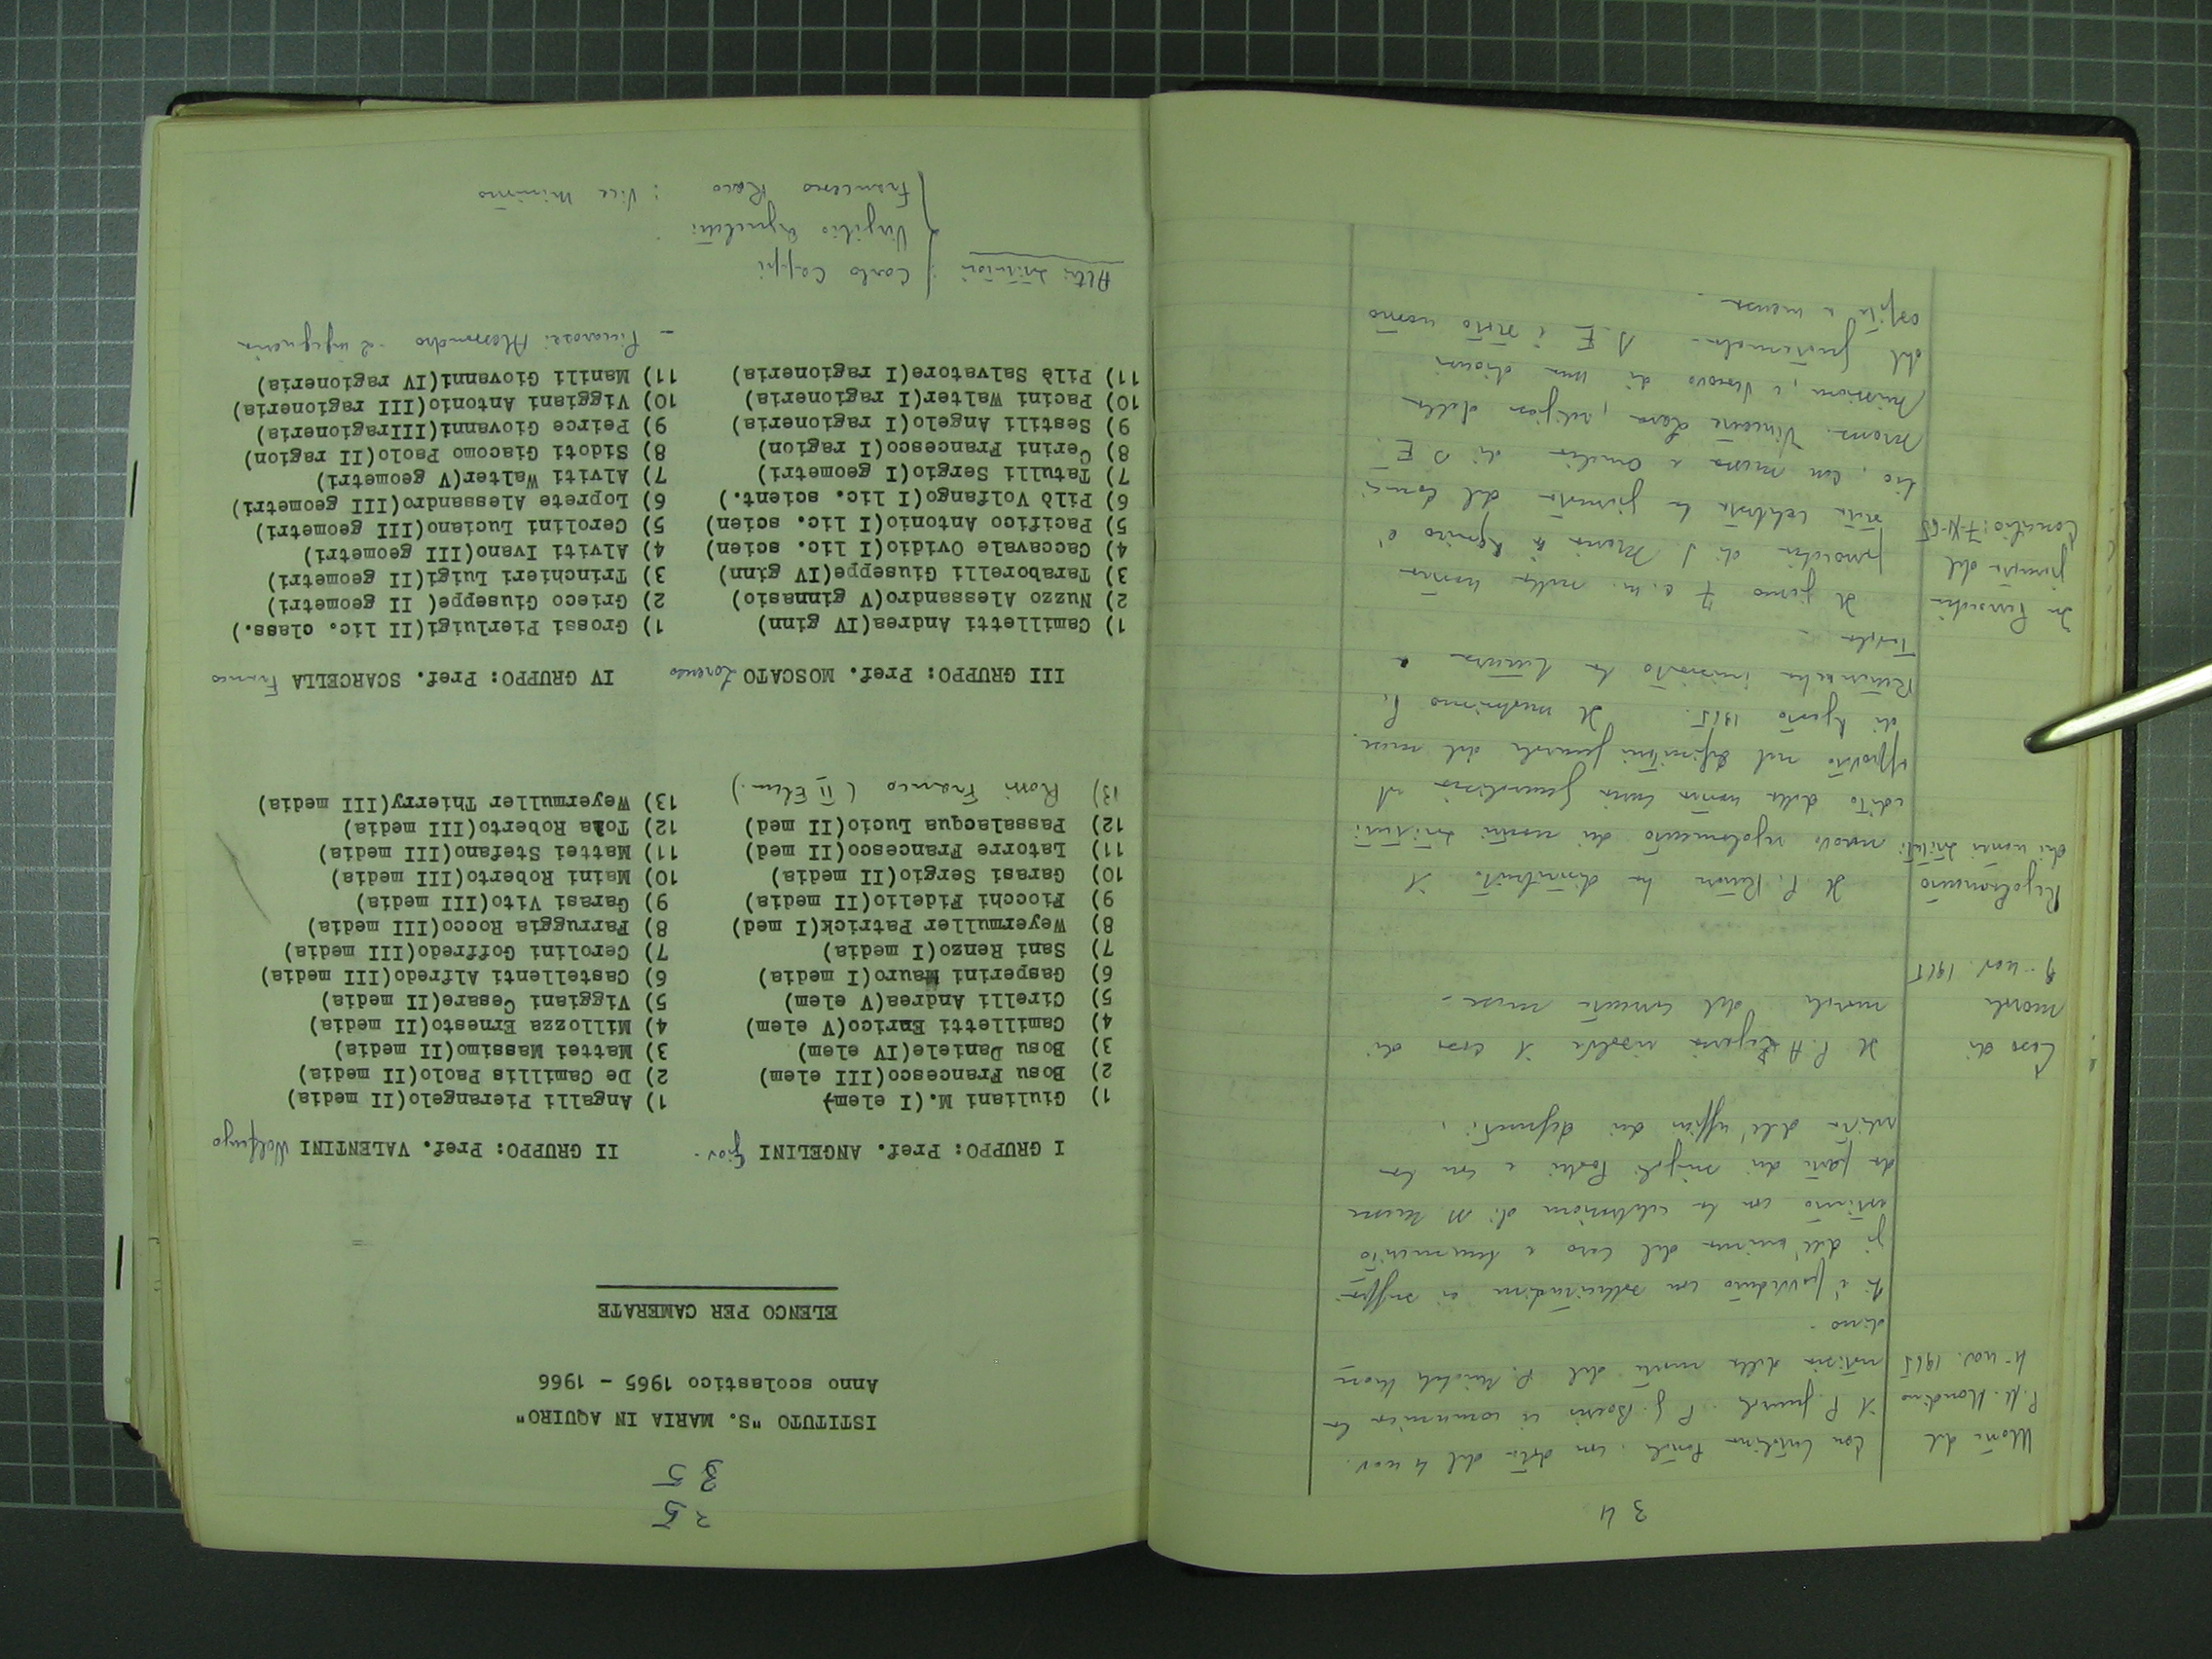 34
Morte del
P. M. Mondino
4 nov. 1965
con lettera del 4 nov.
il P. Gener. P. G. Boeris ci comunica la
notizia della morte del P. Michele Mon
dino.
Si è provveduto con sollecitudine ai suffra
gi dell'anima del caro e
estinto con la celebrazione di SS. Messe
da parte dei singoli Padri e con la
recita dell'uffizio dei defunti.
Caso di
morale
9 nov. 1965
Il P. risolve il caso di
morale del corrente mese.
Regolamento
dei nostri Istituti
Il P. Rettore ha distribuito il
nuovo regolamento dei nostri Istituti
edito dalla nostra Curia Generalizia ed
approvato nel definitorio generale del mese
di Agosto 1965. Il medesimo P.
Rettore ne ha iniziato la lettura a
Tavola.
In Parrocchia
giornata del
Concilio: 7-XI-65
Il giorno 7 c.m. nella nostra
parrocchia di S. Maria in Aquiro è
stata celebrata la giornata del Conci
lio, con messa e omelia di S. E.
Mons. Vincenzo , religioso della
Missione, e Vescovo di una diocesi
del Guatemala. S. E. è stato nostro
ospite a mensa.
35
35
ISTITUTO "S. MARIA IN AQUIRO"
Anno scolastico 1965 - 1966
ELENCO PER CAMERATE
I GRUPPO: Pref. ANGELINI Giov.
1) Giuliani M.(I elem)
2) Bosu Francesco(III elem)
3) Bosu Daniele(IV elem)
4) Camilletti Enrico(V elem)
5) Cirelli Andrea(V elem)
6) Gasperini Mauro(I media)
7) Sani Renzo(I media)
8) Weyermuller Patrick(I med)
9) Fiocchi Fidelio(II media)
10) Garasi Sergio(II media)
11) Latorre Francesco(II med)
12) Passalacqua Lucio(II med)
13) Rossi Franco (II Elem.)
II GRUPPO: Pref. VALENTINI Wolfango
1) Angalli Pierangelo(II media)
2) De Camillis Paolo(II media)
3) Mattei Massimo(II media)
4) Millozza Ernesto(II media)
5) Viggiani Cesare(II media)
6) Castellenti Alfredo(III media)
7) Cerolini Goffredo(III media)
8) Farruggia Rocco(III media)
9) Garasi Vito(III media)
10) Maini Roberto(III media)
11) Mattei Stefano(III media)
12) Tola Roberto(III media)
13) Weyermuller Thierry(III media)
III GRUPPO: Pref. MOSCATO Lorenzo
1) Camilletti Andrea(IV ginn)
2) Nuzzo Alessandro(V ginnasio)
3) Taraborelli Giuseppe(IV ginn)
4) Caccavale Ovidio(I lic. scien)
5) Pacifico Antonio(I lic. scien)
6) Pilò Volfango(I lic. scient.)
7) Tatulli Sergio(I geometri)
8) Cerini Francesco(I ragion)
9) Sestili Angelo(I ragioneria)
10) Pacini Walter(I ragioneria)
11) Pilò Salvatore(I ragioneria)
IV GRUPPO: Pref. SCARCELLA Franco
1) Grossi Pierluigi(II lic. class.)
2) Grieco Giuseppe( II geometri)
3) Trinchieri Luigi(II geometri)
4) Alviti Ivano(III geometri)
5) Cerolini Luciano(III geometri)
6) Loprete Alessandro(III geometri)
7) Alviti Walter(V geometri)
8) Sidoti Giacomo Paolo(II ragion)
9) Peirce Giovanni(IIIragioneria)
10) Viggiani Antonio(III ragioneria)
11) Manili Giovanni(IV ragioneria)
- Picarozzi Alessandro - Ingegneria
Altri istitutori: Carlo Cappi
Virgilio Agnoletti
Francesco Raco : Vice Ministro